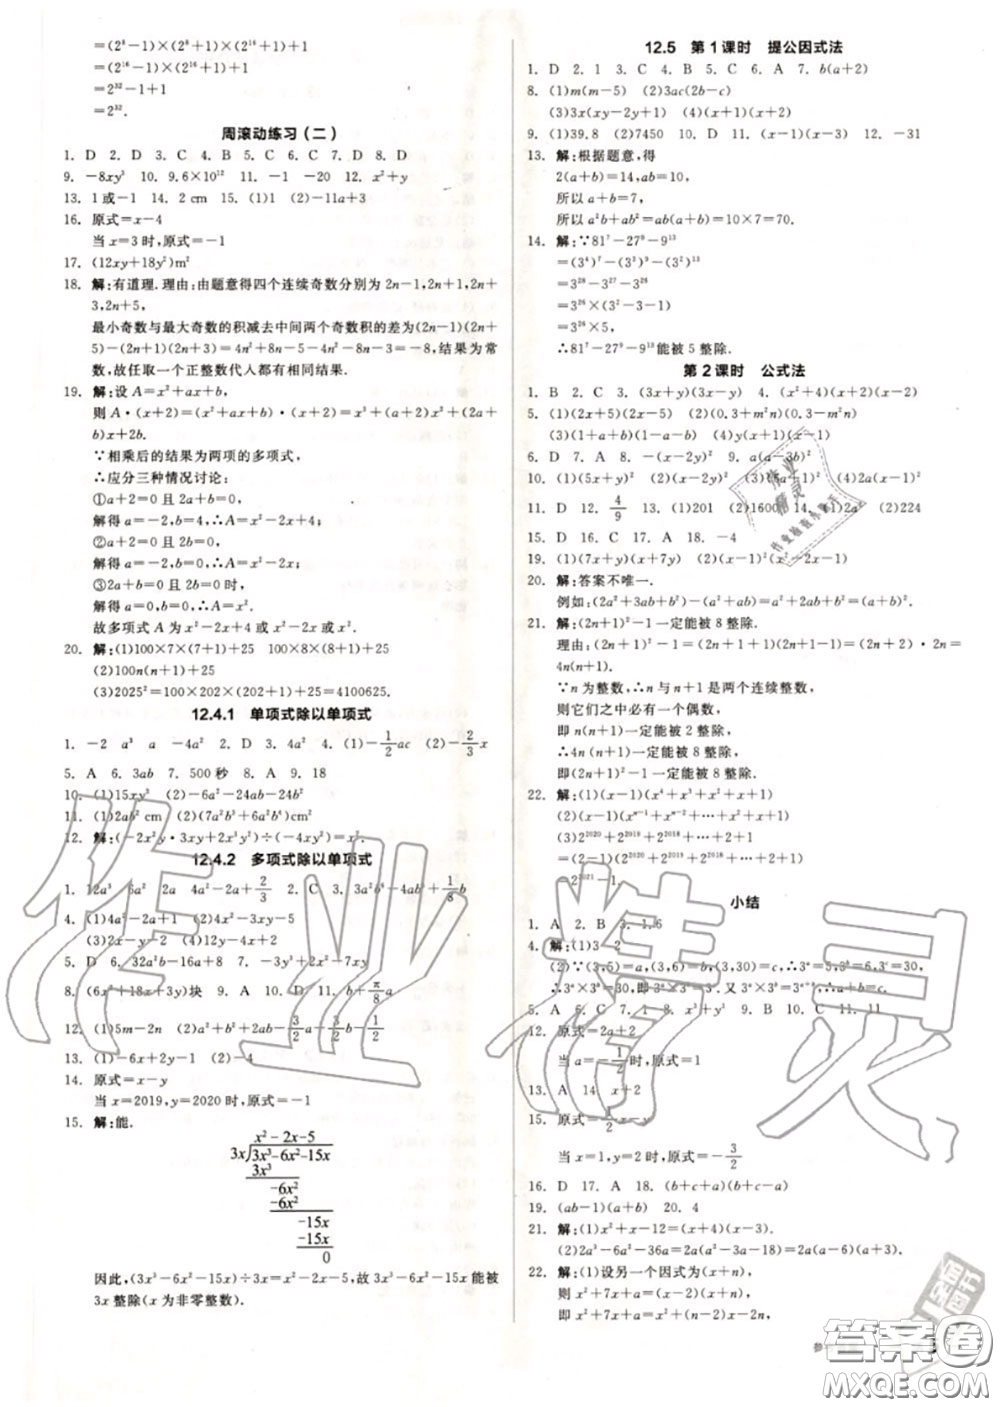 =(2⁸-1)×(2⁸+1)×(2¹⁶+1)+1
=(2¹⁶-1)×(2¹⁶+1)+1
=2³²-1+1
=2³².
周滚动练习(二)
1. D 2. D 3. C 4. B 5. C 6. C 7. D 8. D
9. -8xy³ 10. 9.6×10¹² 11. -1 -20 12. x²+y
13. 1或-1 14. 2 cm 15. (1)1 (2)-11a+3
16. 原式=x-4
当x=3时,原式=-1
17. (12xy+18y²)m²
18. 解:有道理.理由:由题意得四个连续奇数分别为2n-1,2n+1,2n+
3,2n+5,
最小奇数与最大奇数的积减去中间两个奇数积的差为(2n-1)(2n+
5)-(2n+1)(2n+3)=4n²+8n-5-4n²-8n-3=-8,结果为常
数,故任取一个正整数代人都有相同结果.
19. 解:设A=x²+ax+b,
则A·(x+2)=(x²+ax+b)·(x+2)=x³+(a+2)x²+(2a+
b)x+2b.
∵相乘后的结果为两项的多项式,
∴应分三种情况讨论:
①a+2=0且2a+b=0,
解得a=-2,b=4,∴A=x²-2x+4;
②a+2=0且2b=0,
解得a=-2,b=0,∴A=x²-2x;
③2a+b=0且2b=0时,
解得a=0,b=0,∴A=x².
故多项式A为x²-2x+4或x²-2x或x².
20. 解:(1)100×7×(7+1)+25 100×8×(8+1)+25
(2)100n(n+1)+25
(3)2025²=100×202×(202+1)+25=4100625.
12.4.1 单项式除以单项式
1. -2 a³ a -4a² 2. D 3. 4a² 4. (1)-1/2ac (2)-2/3x
5. A 6. 3ab 7. 500秒 8. A 9. 18
10. (1)15xy³ (2)-6a²-24ab-24b²
11. (1)2ab² cm (2)(7a²b²+6a²b⁴) cm²
12. 解:(-2x²y·3xy+2x³y²)÷(-4xy²)=x².
12.4.2 多项式除以单项式
1. 12a³ 6a² 2a 4a²-2a+2/3 2. C 3. 3a²b⁴-4ab²+1/8b
4. (1)4a²-2a+1 (2)4x²-3xy-5
(3)2x-y-2 (4)12y-4x
5. D 6. 32ab²-16a+8 7. -3y³+2x²-7xy
8. (6x²+18x+3y)块 9. A 10. D 11. b+π/8a
12. (1)5m-2n (2)a²+2ab-3/2a-3/2b-1/2
13. (1)-6x+2y-1 (2)-4
14. 原式=x-y
当x=2019,y=2020时,原式=-1
15. 解:能.
x²-2x-5
3x√3x³-6x²-15x
3x³
-6x²
-6x²
-15x
-15x
0
因此,(3x³-6x²-15x)÷3x=x²-2x-5,故3x³-6x²-15x能被
3x整除(x为非零整数).
12.5 第1课时 提公因式法
1. D 2. 1 3. C 4. B 5. C 6. A 7. b(a+2)
8. (1)m(m-5) (2)3ac(2b-c)
(3)3x(xy-2y+1) (4)(x+1)(x+2)
9. (1)39.8 (2)7450 10. D 11. (x-1)(x-3) 12. -31
13. 解:根据题意,得
2(a+b)=14,ab=10,
所以a+b=7,
所以a²b+ab²=ab(a+b)=10×7=70.
14. 解:∵81⁷-27⁹-9¹³
=(3⁴)⁷-(3³)⁹-(3²)¹³
=3²⁸-3²⁷-3²⁶
=3²⁶×(3²-3-1)
=3²⁶×5,
∴81⁷-27⁹-9¹³能被5整除.
第2课时 公式法
1. B 2. C 3. (3x+y)(3x-y) 4. (x²+4)(x+2)(x-2)
5. (1)(2x+5)(2x-5) (2)(0.3+m²n)(0.3-m²n)
(3)(1+a)(1-a) (4)y(x+1)(x-1)
6. D 7. A 8. -(x-2y)² 9. a(a-3b)²
10. (1)(5x+y)² (2)(x-2y)² (3) (4)2a(a-1)²
11. D 12. 4/9 13. (1)201 (2)1600 14. (2)224
15. D 16. C 17. A 18. -4
19. (1)(7x+y)(x+7y) (2)(x²-2x-1)²
20. 解:答案不唯一.
例如:(2a²+3ab+b²)-(a²+ab)=a²+2ab+b²=(a+b)².
21. 解:(2n+1)²-1一定能被8整除.
理由:(2n+1)²-1=(2n+1+1)(2n+1-1)=(2n+2)·2n=
4n(n+1).
∵n为整数,∴n与n+1是两个连续整数,
则它们之中必有一个偶数,
即n(n+1)一定能被2整除,
∴4n(n+1)一定能被8整除,
即(2n+1)²-1一定能被8整除.
22. 解:(1)(x-1)(x⁴+x³+x²+x+1)
(2)(x-1)(xⁿ+xⁿ⁻¹+xⁿ⁻²+…+x²+x+1)
(3)2²⁰²⁰+2²⁰¹⁹+2²⁰¹⁸+…+2+1
=(2-1)(2²⁰²⁰+2²⁰¹⁹+2²⁰¹⁸+…+2+1)
=2²⁰²¹-1.
小结
1. A 2. B 3. 1.6
4. 解:(1)3 2
(2)∵(3,5)=a,(3,6)=b,(3,30)=c,∴3ᵃ=5,3ᵇ=6,3ᶜ=30,
∴3ᵃ×3ᵇ=30,即3ᵃ×3ᵇ=3ᶜ.又3ᵃ×3ᵇ=3ᵃ⁺ᵇ,∴a+b=c.
5. A 6. C 7. 1 8. x⁶+y⁶ 9. B 10. C 11. 11
12. 原式=2a+2
当a=-1/2时,原式=1
13. A 14.
15. 原式=-1/2x-y
当x=1,y=2时,原式=-3/2
16. D 17. A 18. (b+c+a)(b+c-a)
19. (ab-1)(a+b) 20. 4
21. 解:(1)x²+x-12=(x+4)(x-3)
(2)2a³-6a²-36a=2a(a²-3a-18)=2a(a+3)(a-6)
22. 解:(1)设另一个因式为(x+a),
则x²+7x+a=(x+2)(x+
即x²+7x+a=
作业精灵
答案圈
MXQE.COM